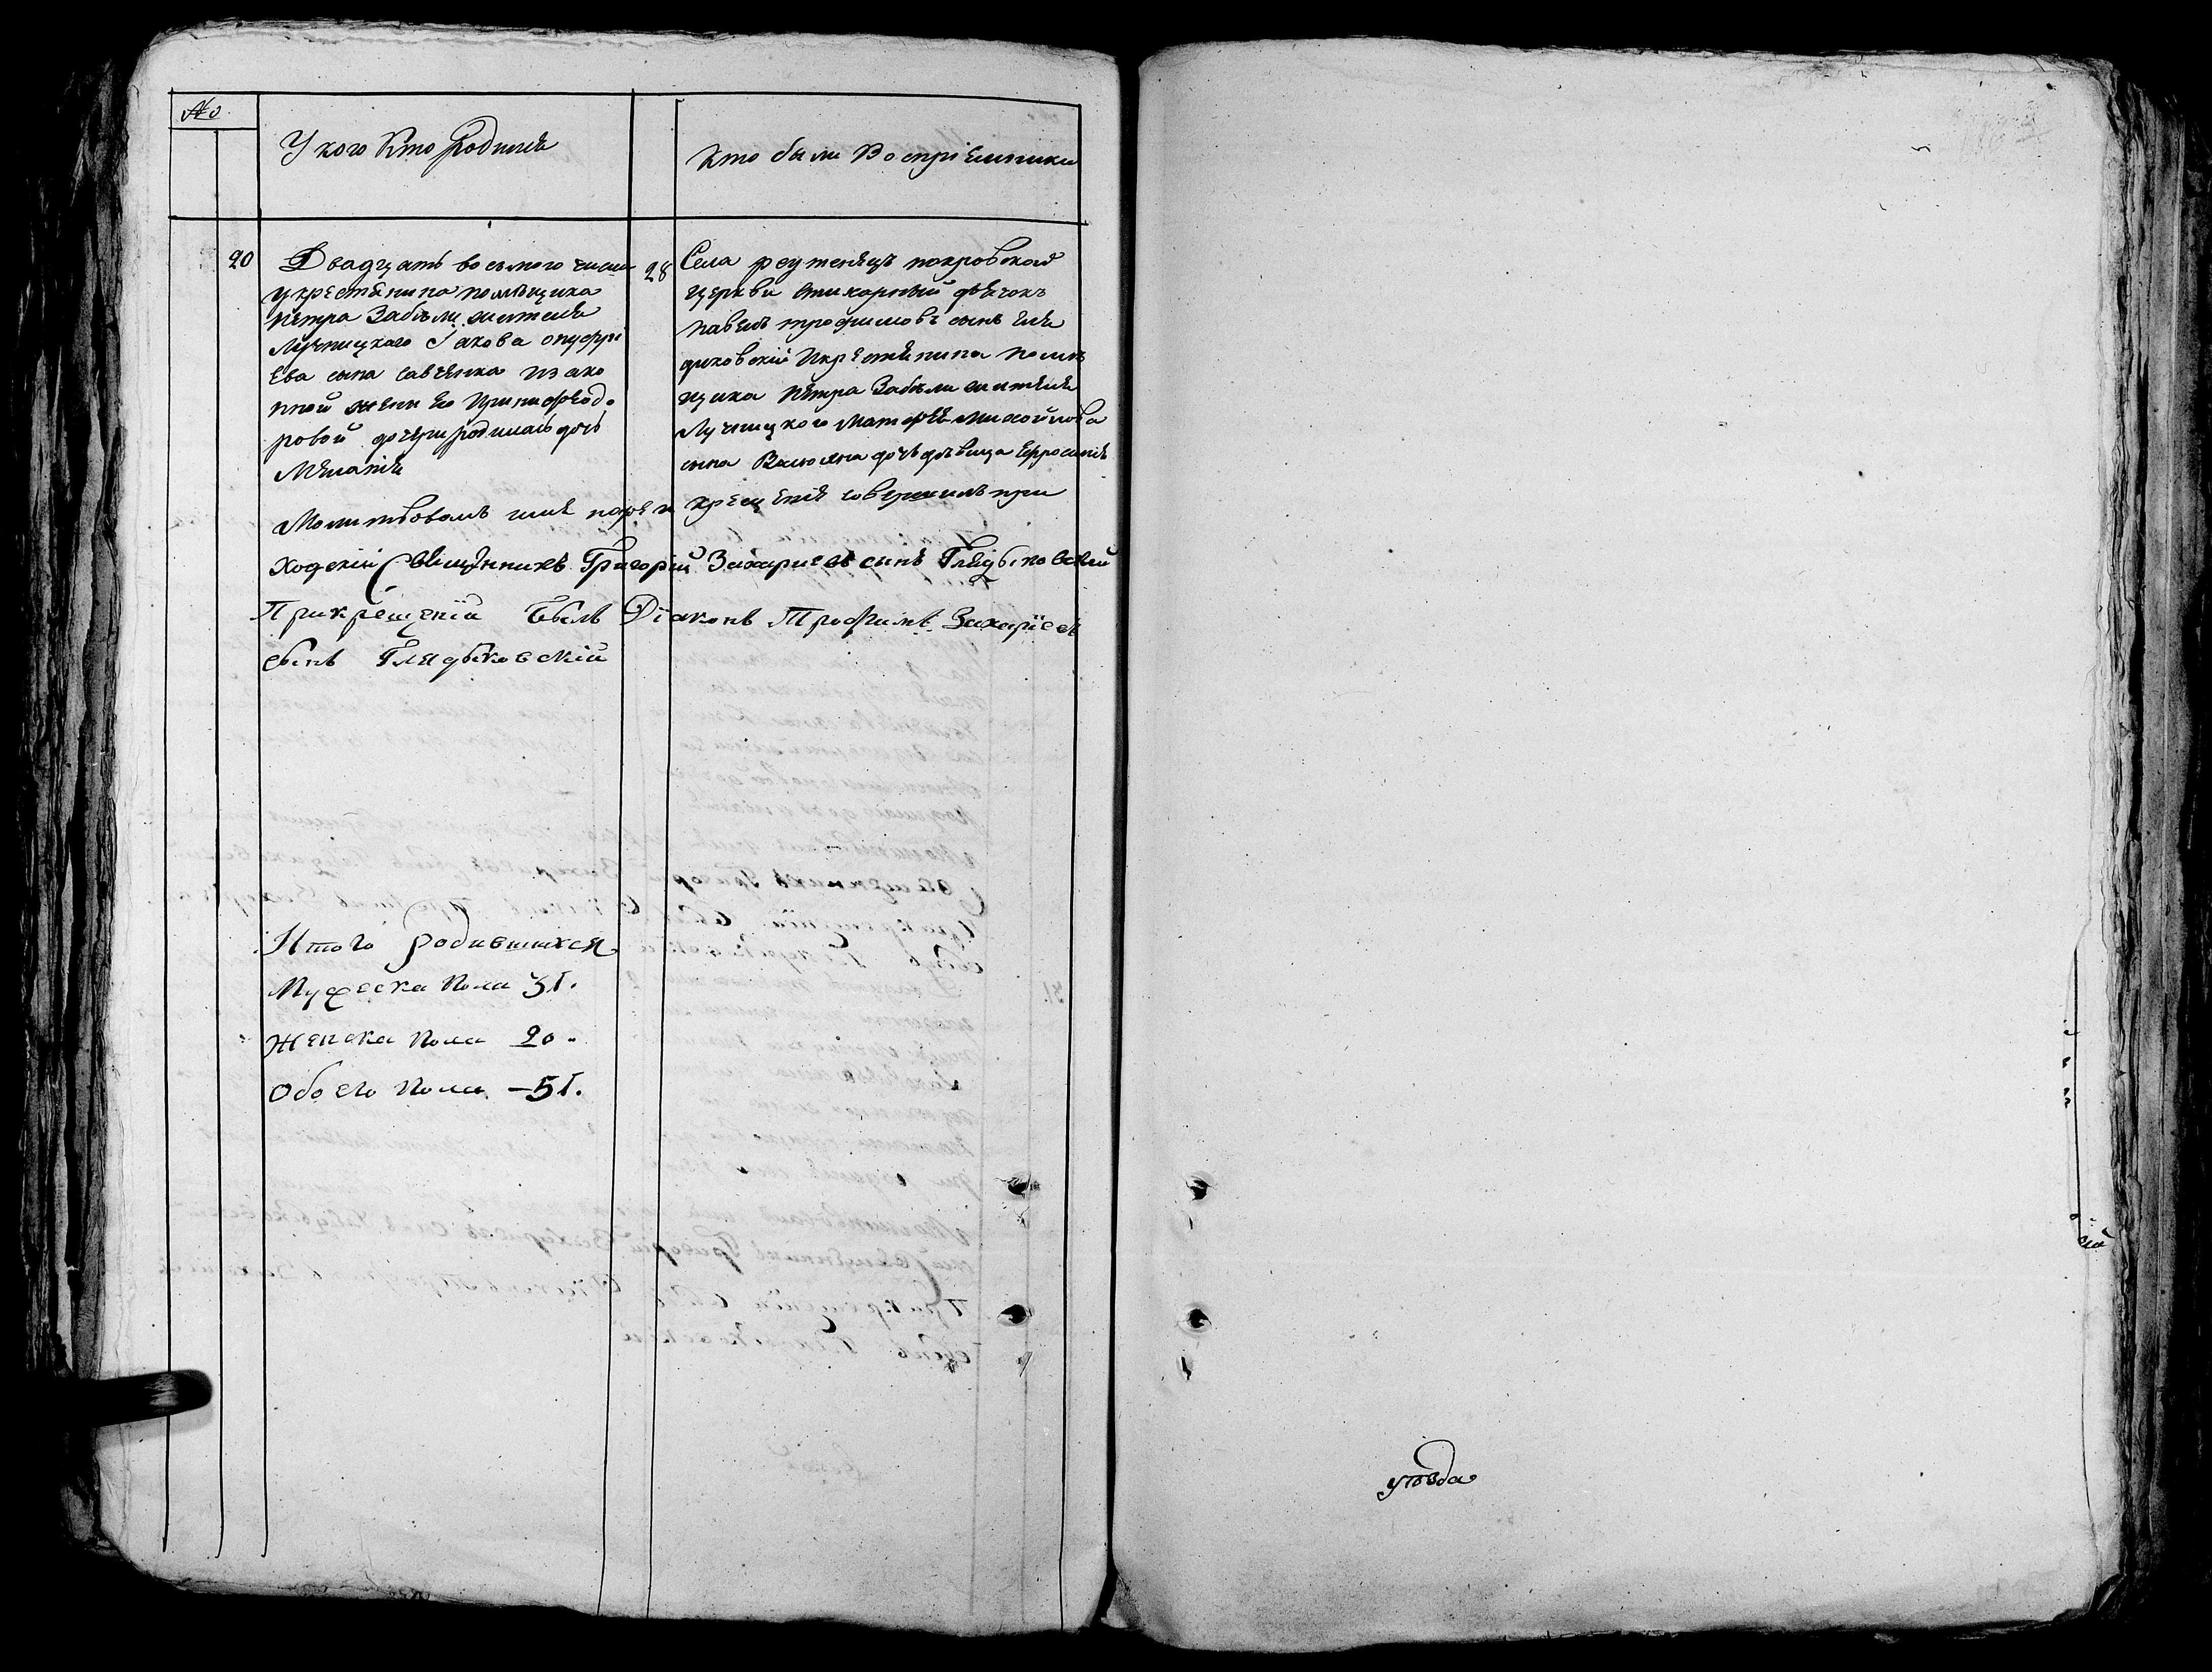 №
У кого Кто родился
Кто были Воспріемники
20
Двадцать восьмого числа
у крестянина помѣщика
Петра Забѣлы жителя
Лучницкого Іакова онуфрі
ева сына савченка изако
нной жены Его Ирины федо
ровой дочери родилась дочь
Меланія
28
Села реутенецъ покровской
церкви стихарный дячокъ
павелъ трофимовъ сынъ Гля
диковскій Икрестянина помѣ
щика Петра Забѣлы жителя
Лучницкого Матфея Михайлова
сына дочь дѣвица Ефросинія
Молитвовалъ имя нарекъ крещеніе совершилъ при
ходскій Священникъ Григорій Захаріевъ сынъ Глядыковскій
Прикрещеніи Былъ Діаконъ Трофимъ Захаріевъ
сынъ Глядыковскій
Итого родившихся
Мужеска Пола 31.
Женска Пола 20.
Обоего Пола – 51.
уѣзда